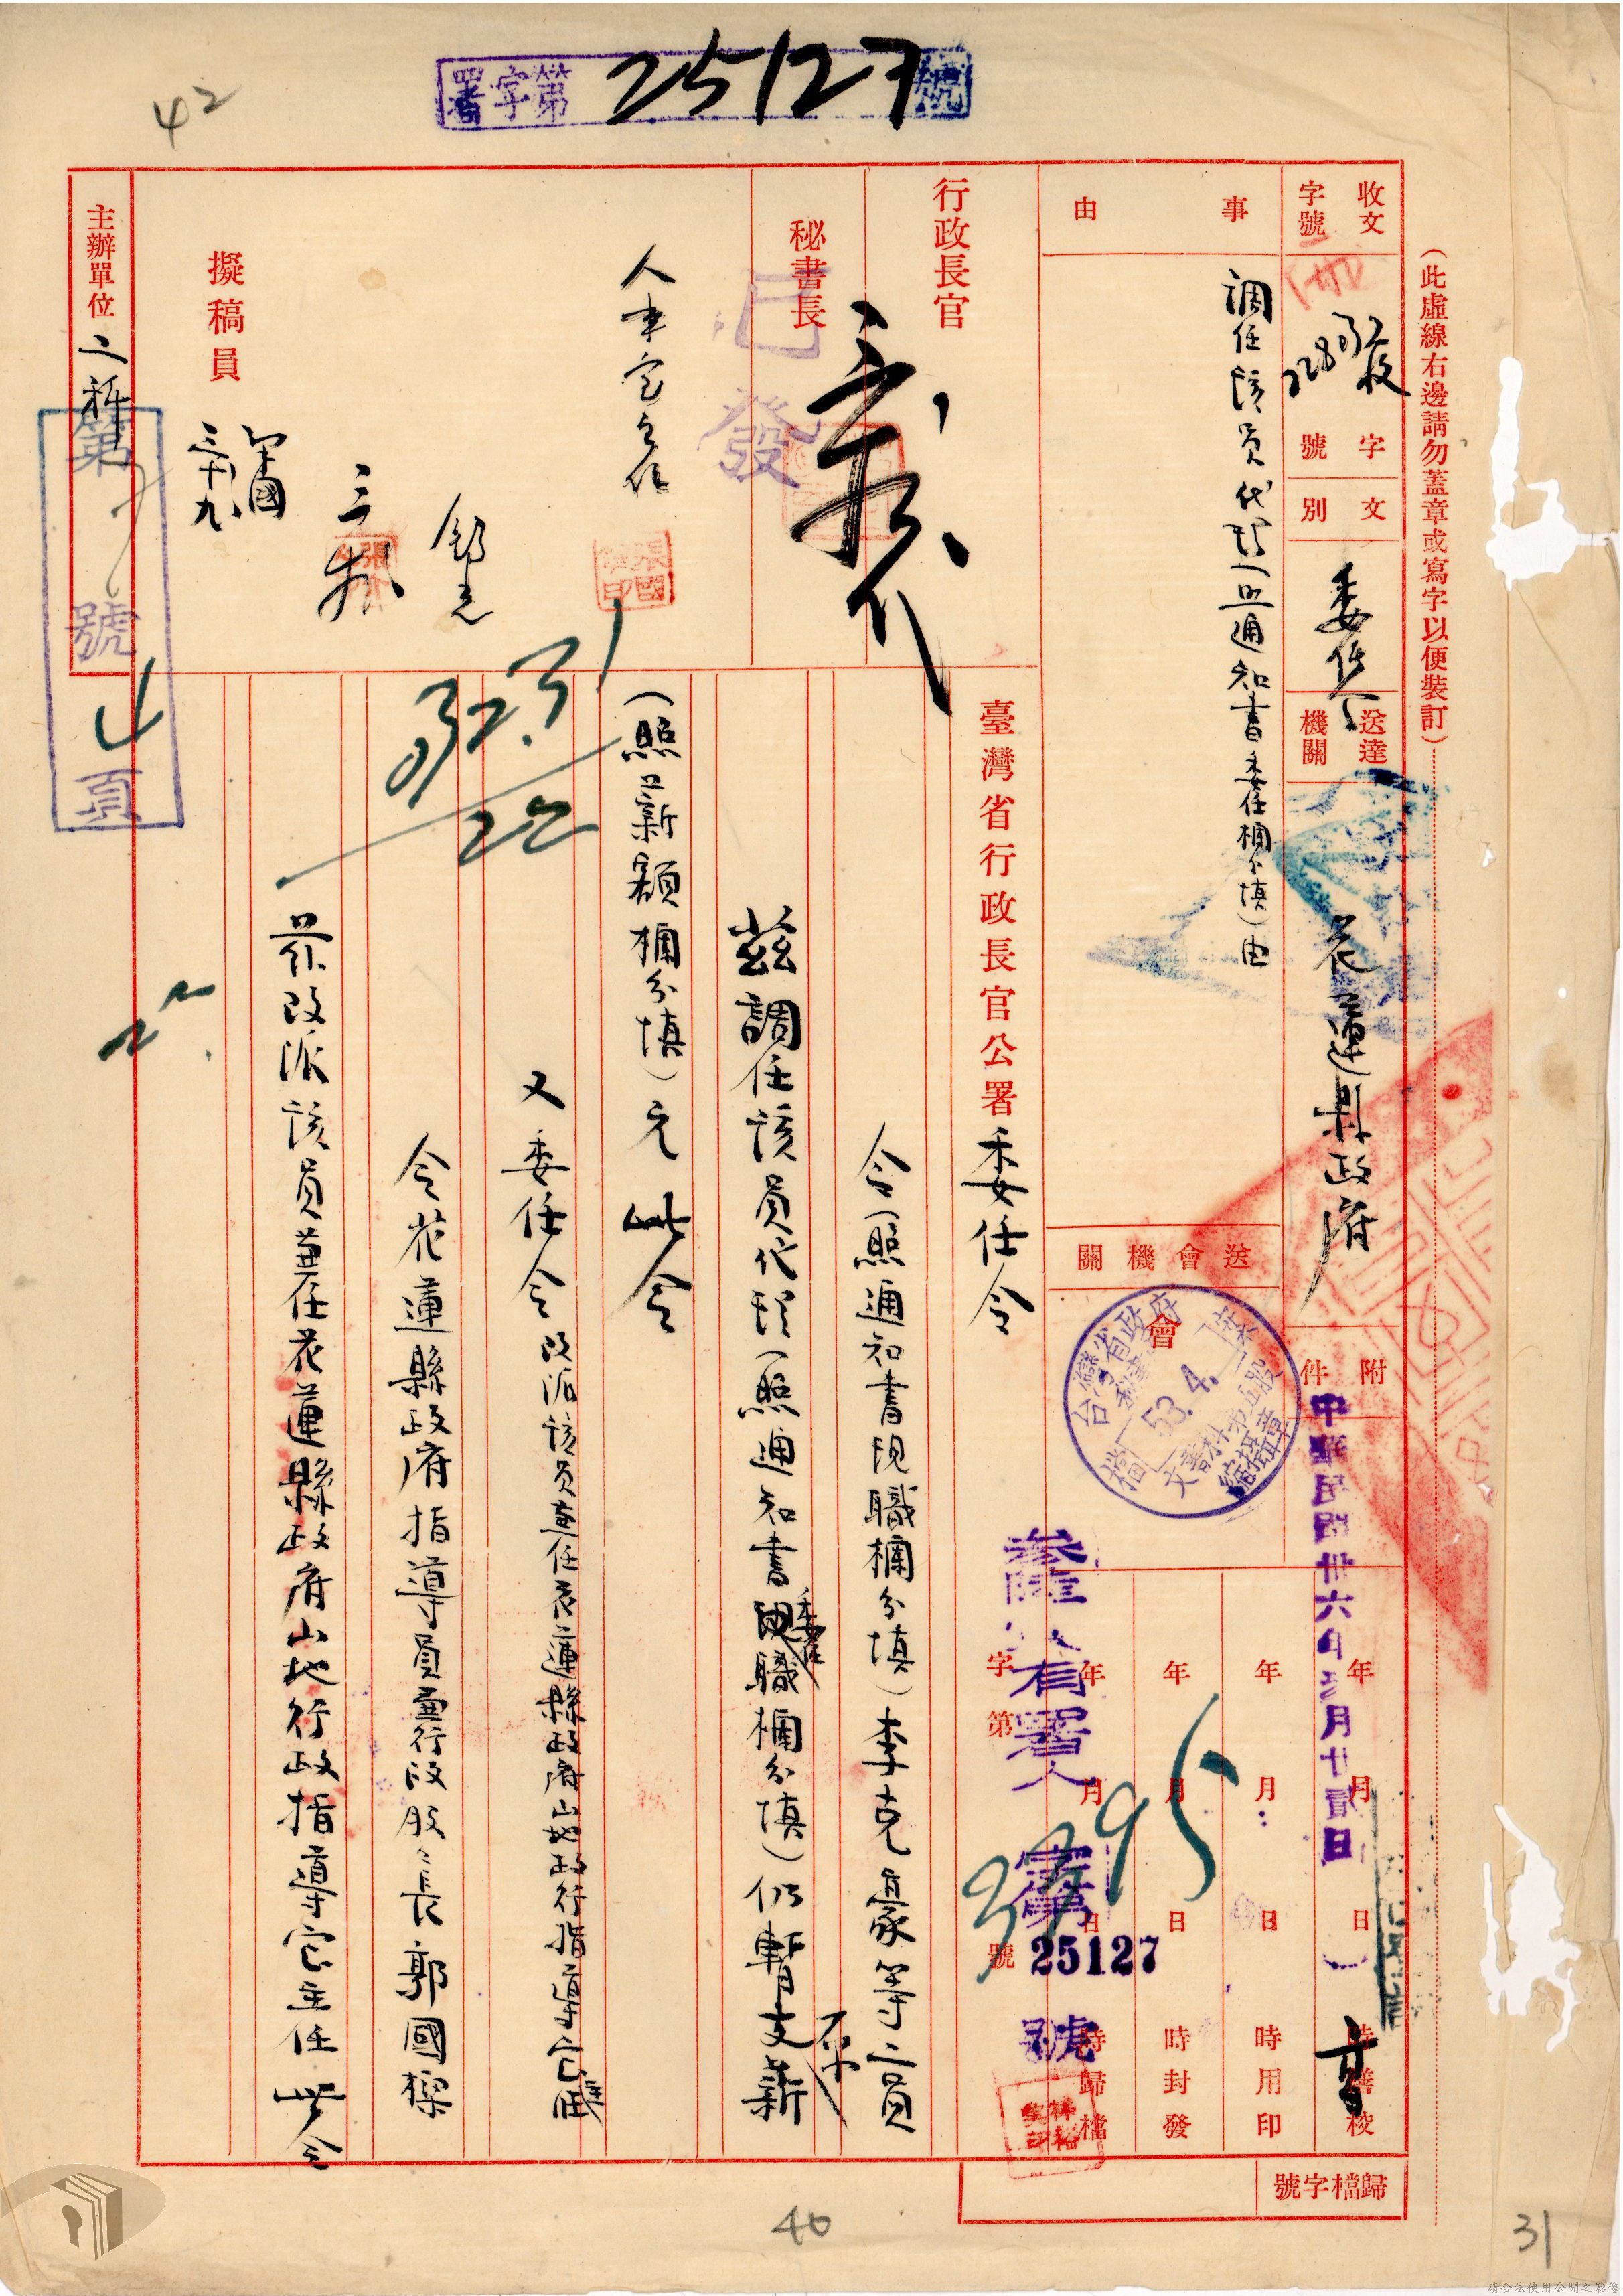 署字第25127號
42
(此虛線右邊請勿蓋章或寫字以便裝訂)
收文字號
字號
文別
委任令
送達機關
花蓮縣政府
附件
中華民國卅六年 月廿貳日
年月日時繕校
年月日時用印
年月日時封發
年月日時歸檔
事由
調任該員代理(照通知書委任欄分填)由
送會機關
會
台灣省政府
53.4.
文書科第五股
檔
縮攝章
行政長官
秘書長
已發
臺灣省行政長官公署委任令
署人
字第
號
25127
3795
令(照通知書現職欄分填)李克豪等二員
茲調任該員代理(照通知書委任職欄分填)仍暫支薪
(照薪額欄分填)元此令
又委任令
改派該員兼任花蓮縣政府山地政行指導室
令花蓮縣政府指導員兼行政股股長郭國樑
茲改派該員兼任花蓮縣政府山地行政指導室主任此令
人事室
擬稿員
主辦單位
二科
第 號 頁
歸檔字號
40
31
請合法使用公開之影像